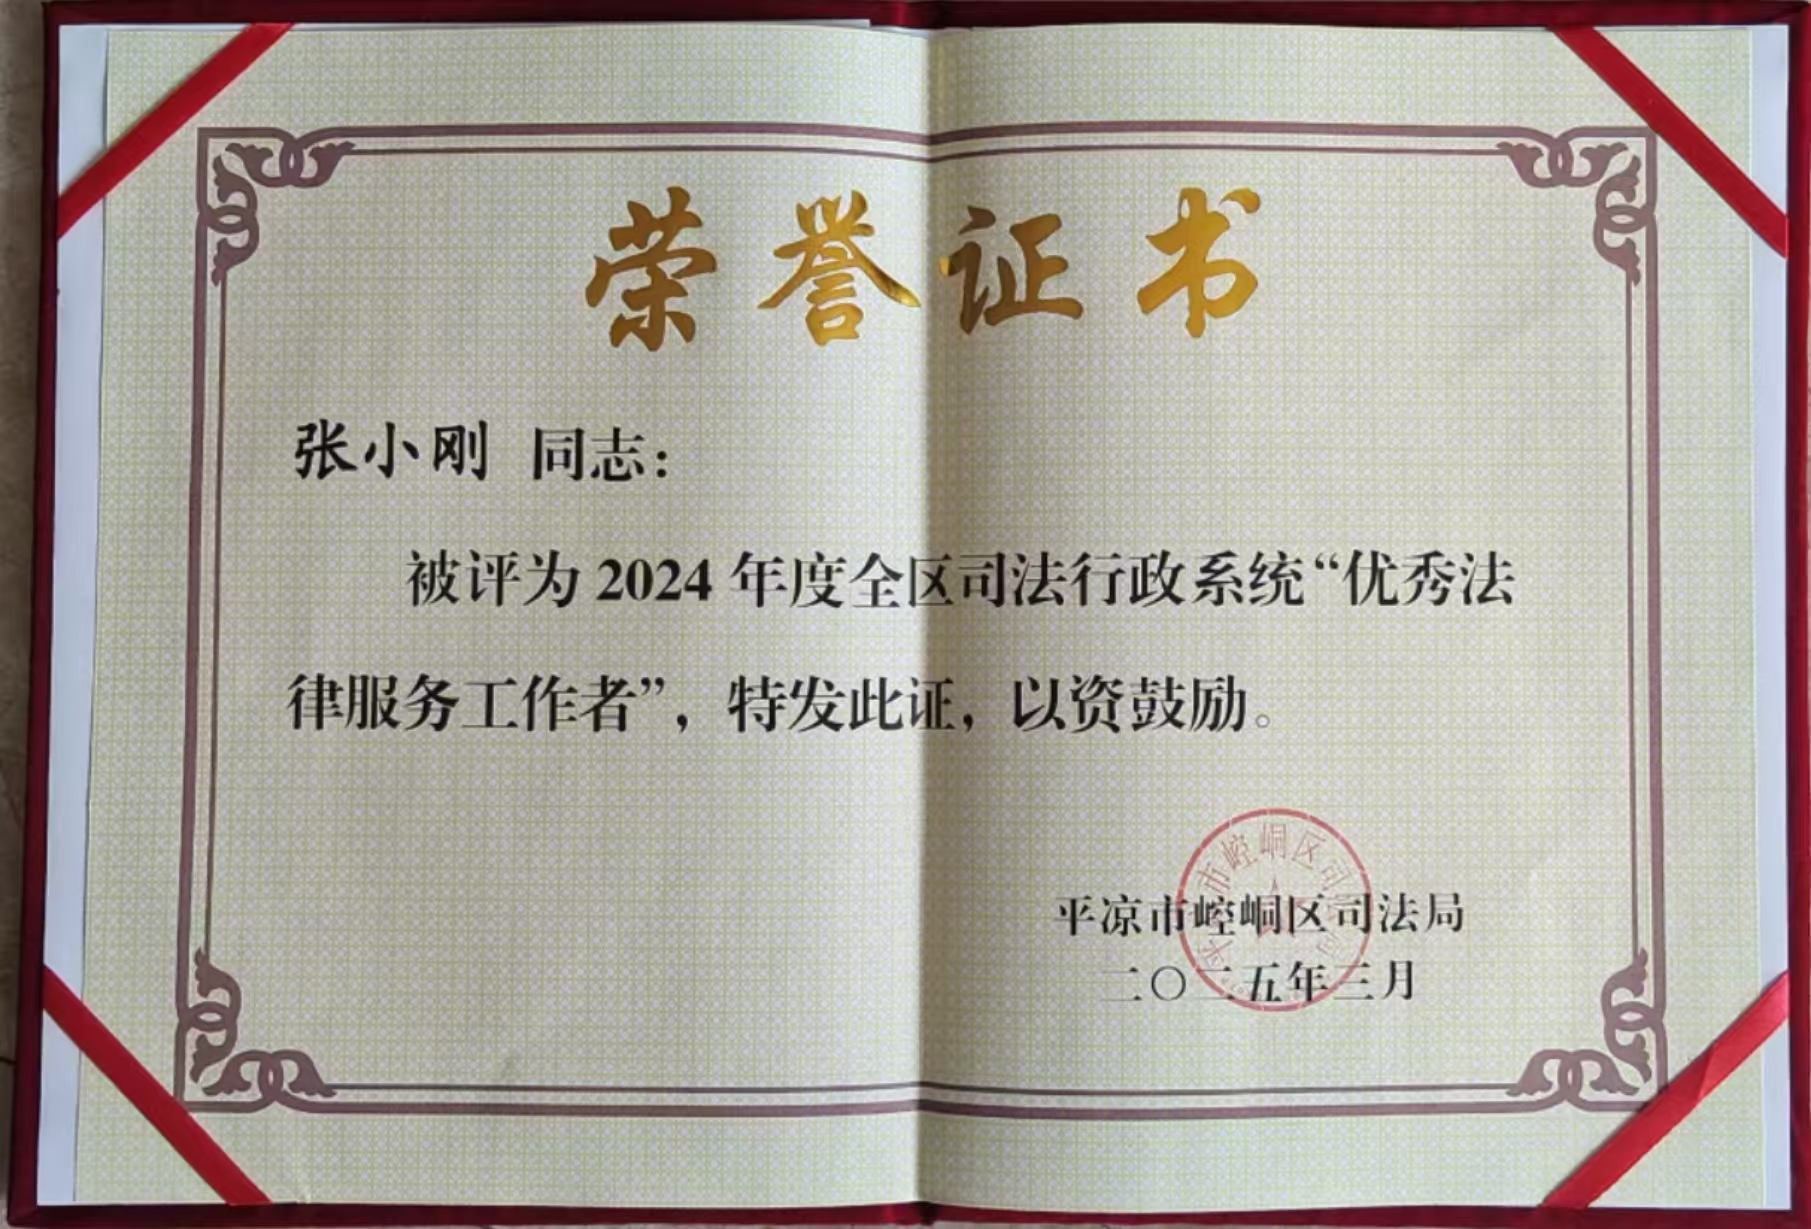 荣誉证书
张小刚 同志：
被评为 2024 年度全区司法行政系统“优秀法
律服务工作者”，特发此证，以资鼓励。
市崆峒区司
平凉市崆峒区司法局
二〇二五年三月